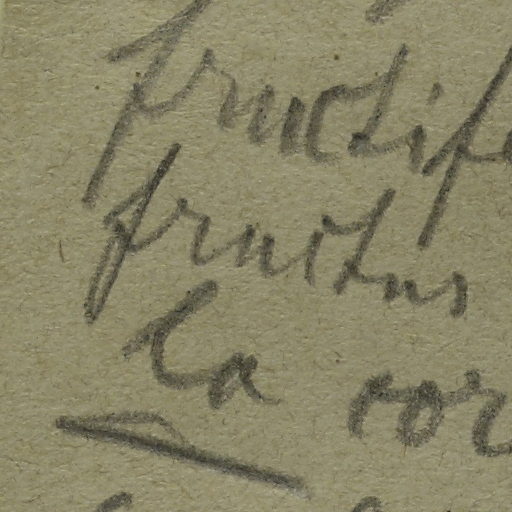 fructife
fructus
la cor